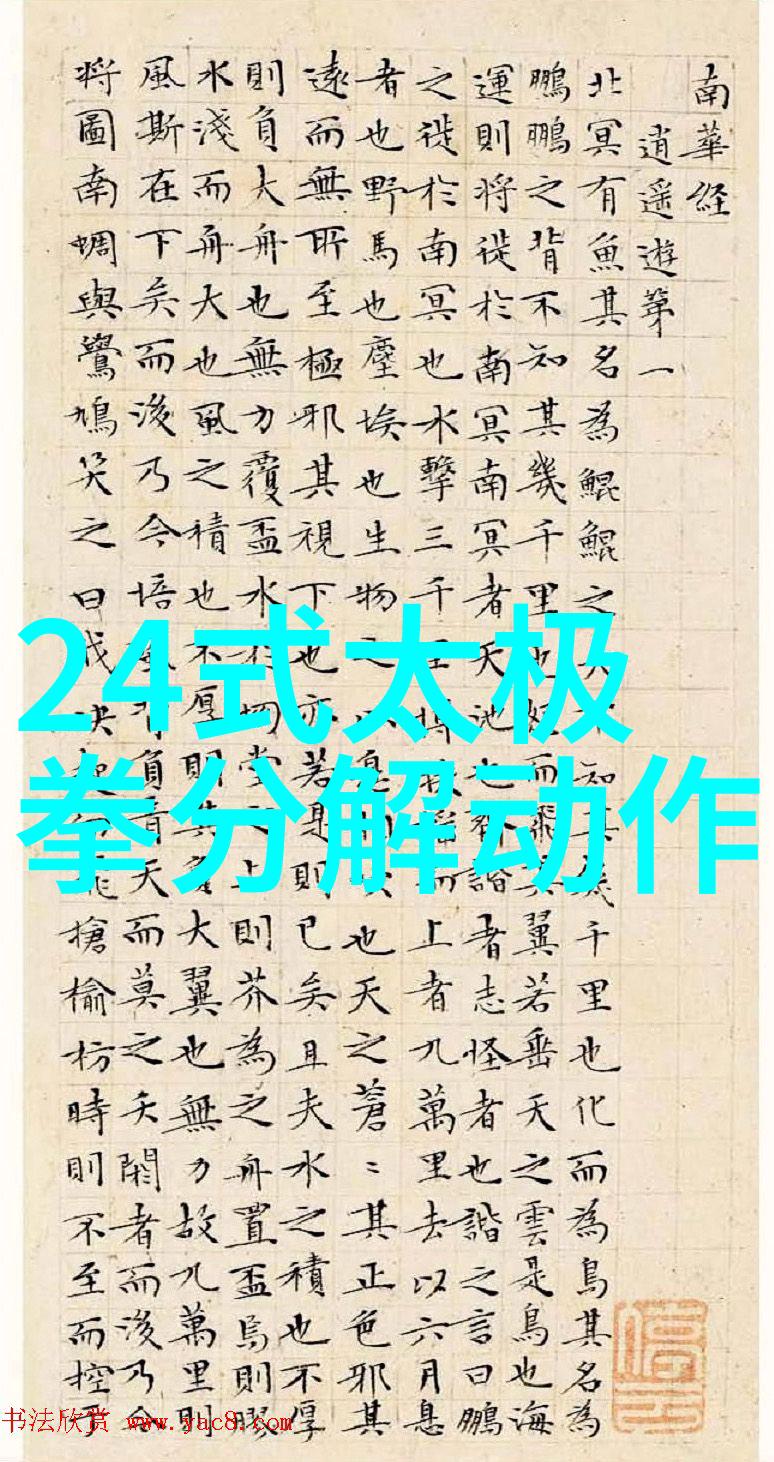 南華経
逍遥遊第一
北冥有魚其名為鯤鯤之不知其幾千里也化而為鳥其名為
鵬鵬之背不知其幾千里也怒而飛其翼若垂天之雲是鳥也海
運則将徙於南冥南冥者天池也齊諧者志怪者也諧之言曰鵬
之徙於南冥也水擊三千里摶扶搖而上者九萬里去以六月息
者也野馬也塵埃也生物之以息相吹也天之蒼〻其正色邪其
遠而無所至極邪其視下也亦若是則已矣且夫水之積也不厚
則負大舟也無力覆盃水於坳堂之上則芥為之舟置盃焉則膠
水淺而舟大也風之積也不厚則其負大翼也無力故九萬里則
風斯在下矣而後乃今培風背負青天而莫之夭閼者而後乃今
将圖南蜩與鷽鳩笑之曰我決起而飛搶榆枋時則不至而控于
24式太极
拳分解动作
书法欣赏 www.yac8.com